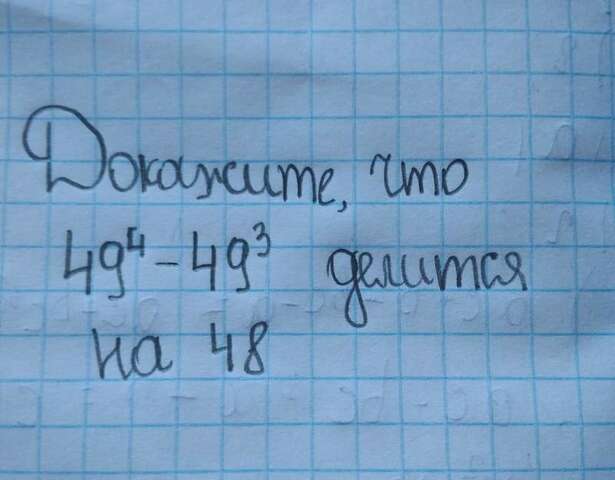 Докажите, что
49⁴ - 49³ делится
на 48